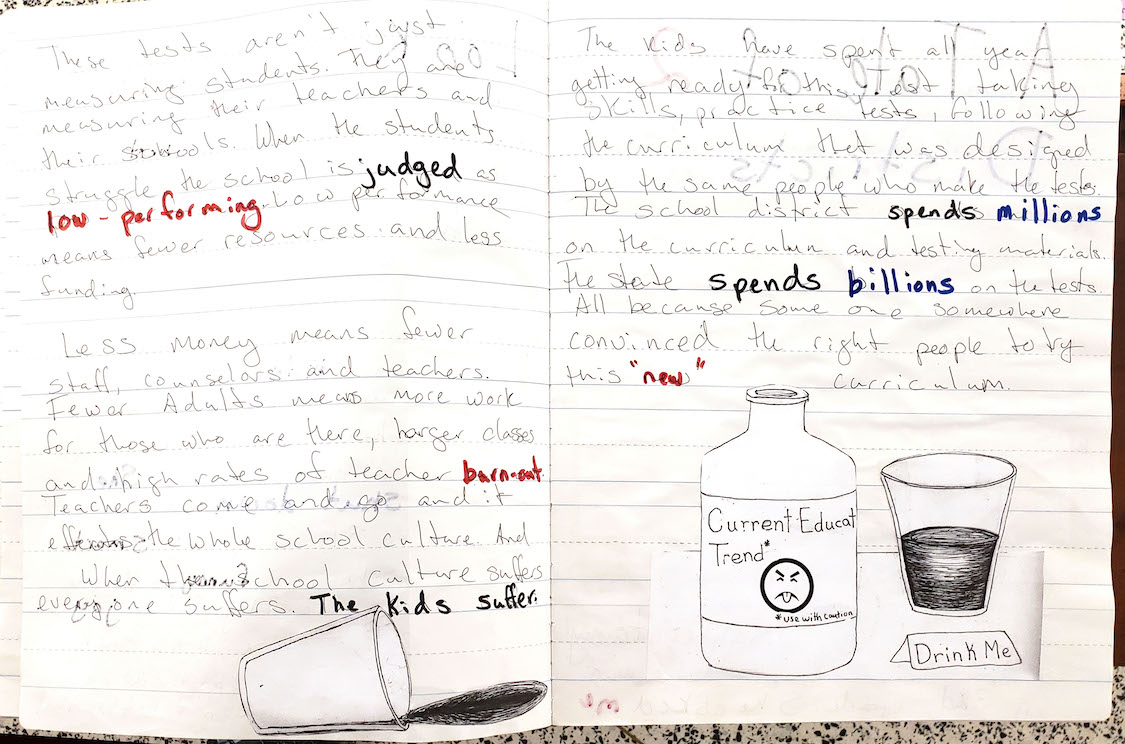 These tests aren't just
measuring students. They are
measuring their teachers and
their schools. When the students
struggle the school is judged as
low-performing. Low performance
means fewer resources and less
funding
Less money means fewer
staff, counselors and teachers.
Fewer Adults means more work
for those who are there, larger classes
and high rates of teacher burn-out.
Teachers come and go and it
effects the whole school culture. And
when the school culture suffers
everyone suffers. The kids suffer.
The kids have spent all year
getting ready for this. Test taking
skills, practice tests, following
the curriculum that was designed
by the same people who make the tests.
The school district spends millions
on the curriculum and testing materials.
The state spends billions on the tests.
All because some one somewhere
convinced the right people to try
this "new" curriculum.
Current Educat
Trend*
*use with caution
Drink Me